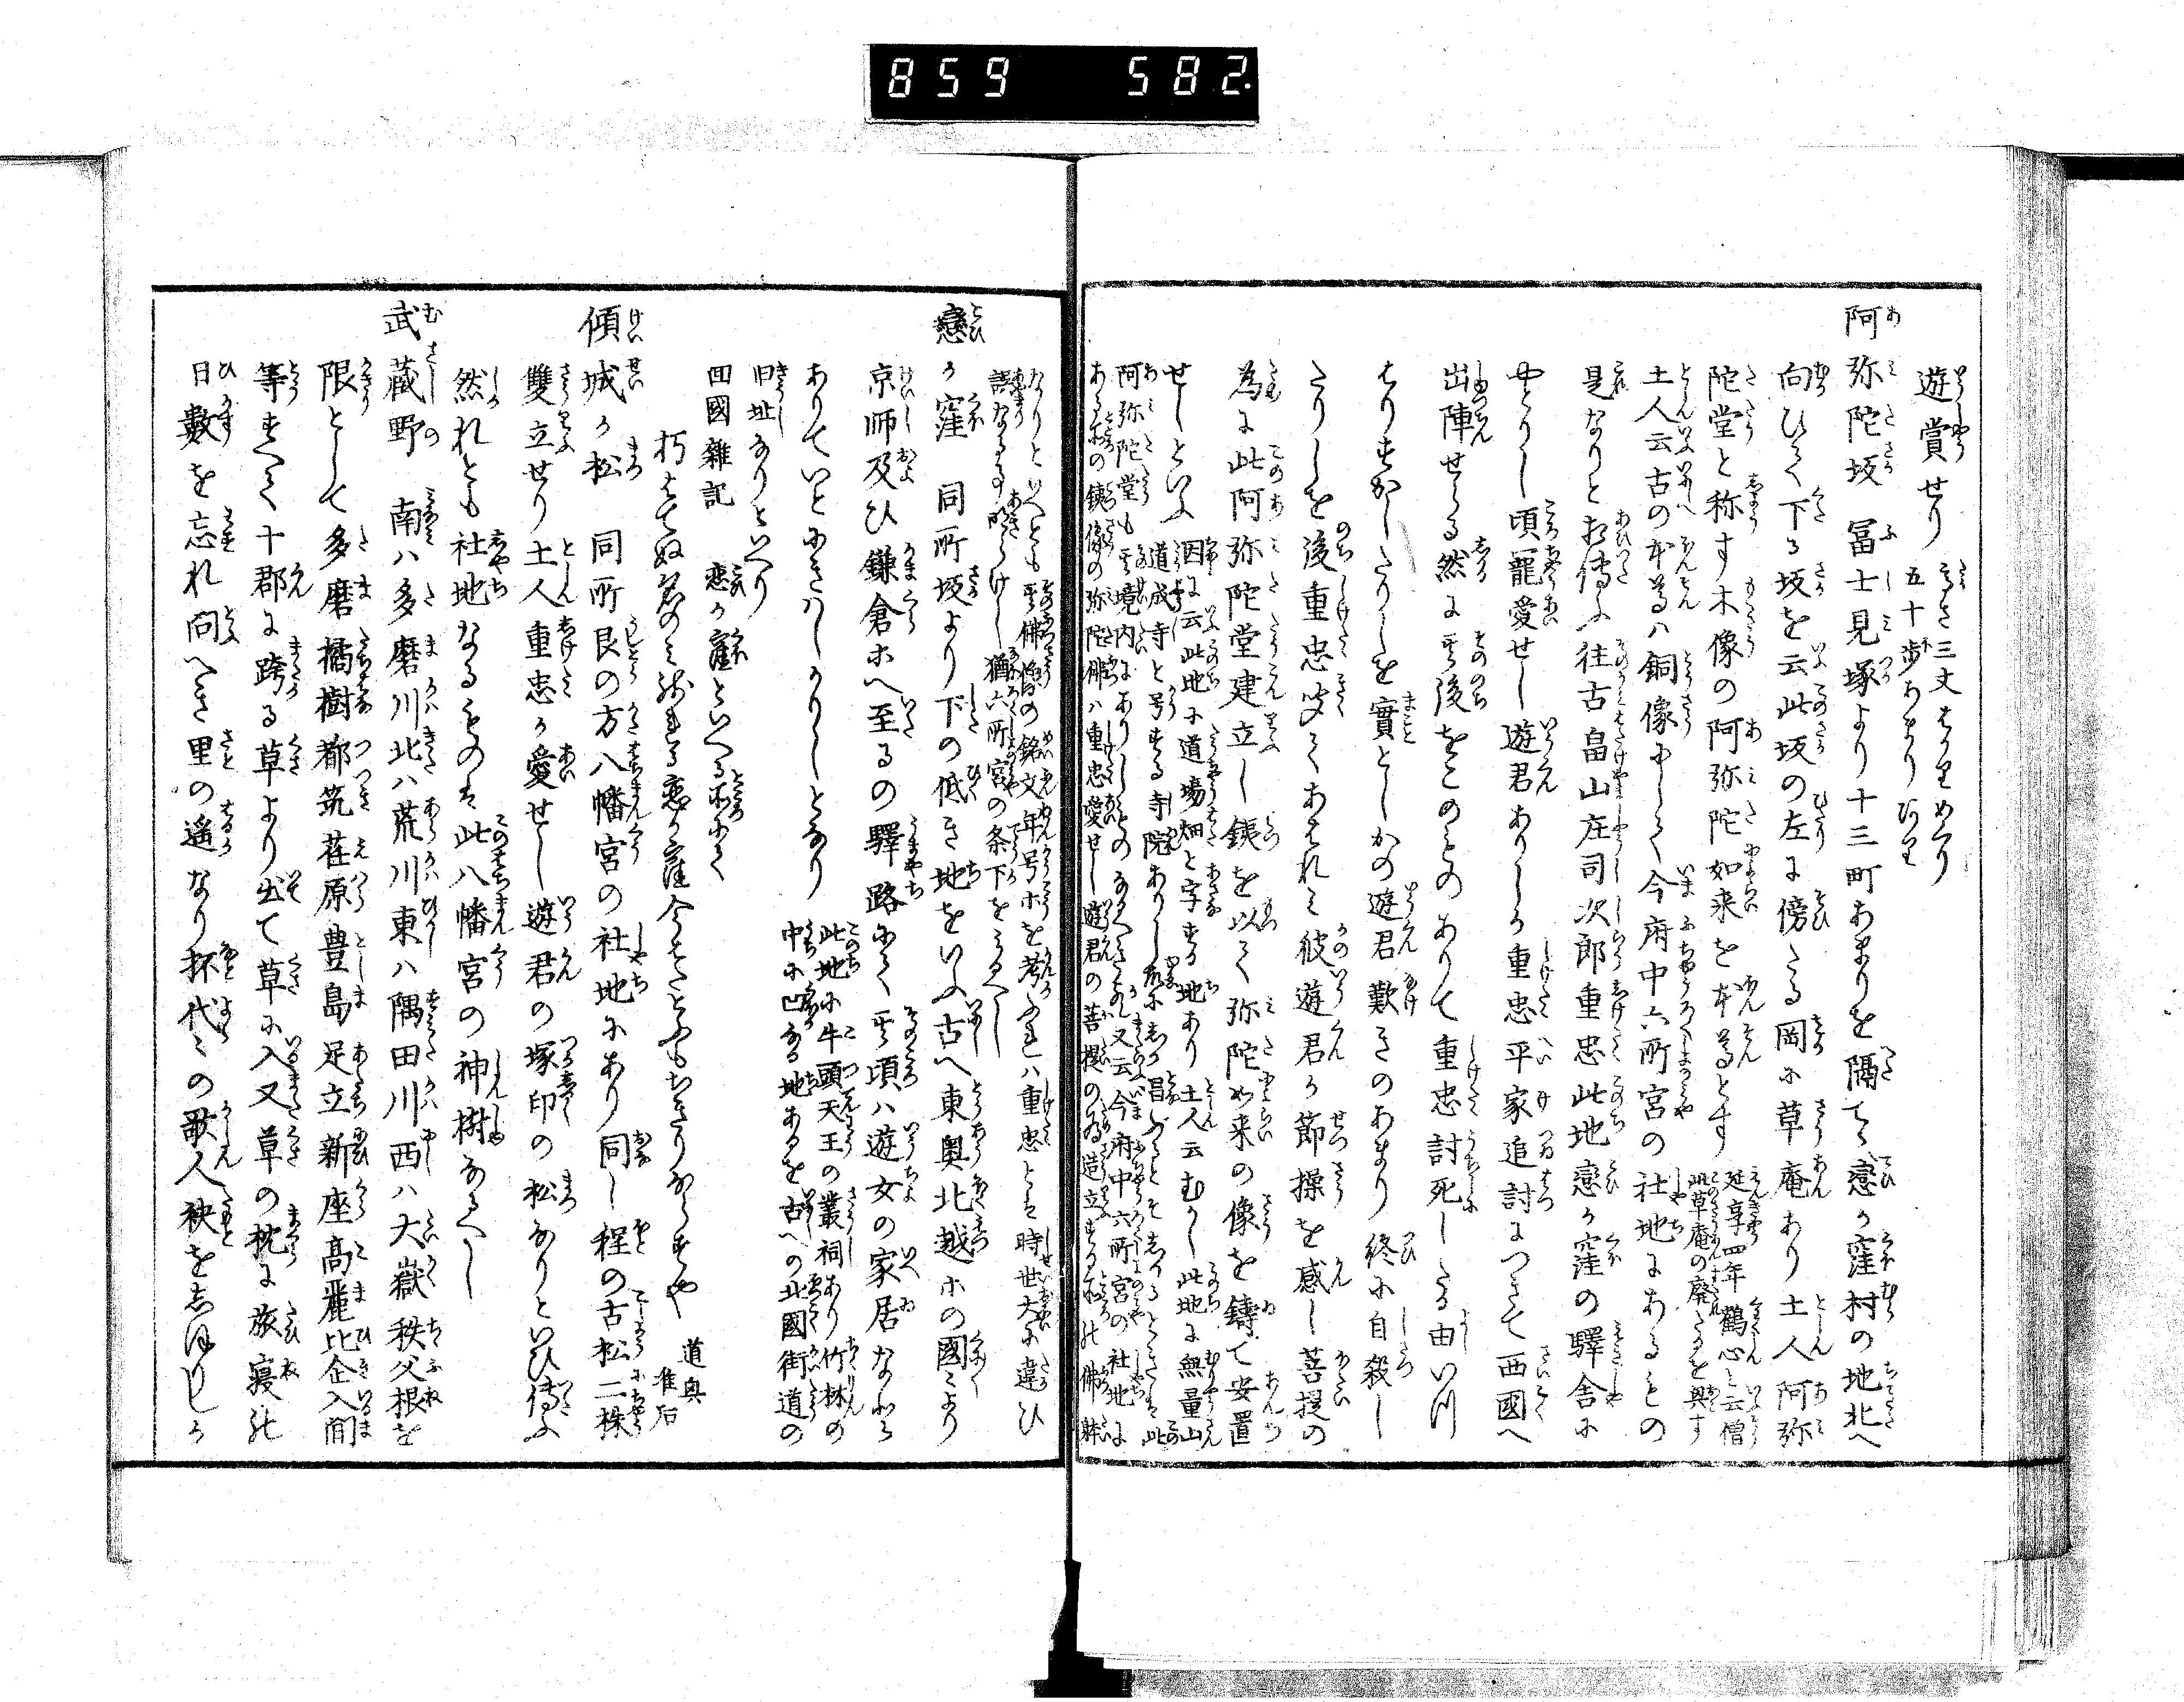 859 582.
遊賞せり 高さ三丈はかりめくり
五十歩あまりあり
阿弥陀坂 冨士見塚より十三町あまりを隔てゝ戀か窪村の地北へ
向ひて下る坂を云此坂の左に傍たる岡に草庵あり土人阿弥
陀堂と称す木像の阿弥陀如来を本尊とす 延享四年鶴心と云僧
此草庵の廃たるを興す
土人云古の本尊ハ銅像にして今府中六所宮の社地にあるもの
是なりと相傳ふ往古畠山庄司次郎重忠此地戀か窪の驛舎に
やとりし頃寵愛せし遊君ありしか重忠平家追討につきて西國へ
出陣せる然に其後をこのものありて重忠討死したる由いつ
はりすかしたりしを實としかの遊君歎きのあまり終に自殺し
たりしを後重忠聞てあはれミ彼遊君か節操を感し菩提の
為に此阿弥陀堂建立し銕を以て弥陀如来の像を鋳て安置
せしといふ 因に云此地に道場畑と字する地あり土人云むかし此地に無量山
道成寺と号する寺院ありし
阿弥陀堂も其境内にありしものなるへきか又云今府中六所宮の社地に
ある所の銕像の弥陀佛ハ重忠愛せし遊君の菩提の為造立する所の佛躰
なりといへとも其佛像の銘文年号ホを考ふれハ重忠とは時世大に違ひ
誤なる事明らけし猶六所宮の条下をみるへし
戀か窪 同所坂より下の低き地をいふ古へ東奥北越ホの國〻より
京師及ひ鎌倉ホへ至るの驛路にて其頃ハ遊女の家居なとら
ありていとにきハしかりしとなり 此地に牛頭天王の叢祠あり竹林の
中に凹なる地あるを古への北國街道の
旧址なりといへり
回國雜記 恋か窪といへる所にて
朽はてぬ名のミ残れる恋か窪今はたとふもちきりならすや 道興
准后
傾城か松 同所艮の方八幡宮の社地にあり同し程の古松二株
雙立せり土人重忠か愛せし遊君の塚印の松なりといひ傳ふ
然れとも社地なるものは此八幡宮の神樹なるへし
武蔵野 南ハ多磨川北ハ荒川東ハ隅田川西ハ大嶽秩父根を
限として多磨橘樹都筑荏原豊島足立新座高麗比企入間
等すへて十郡に跨る草より出て草に入又草の枕に旅寝の
日數を忘れ問へき里の遥なり抔代〻の歌人秧をしほりしか